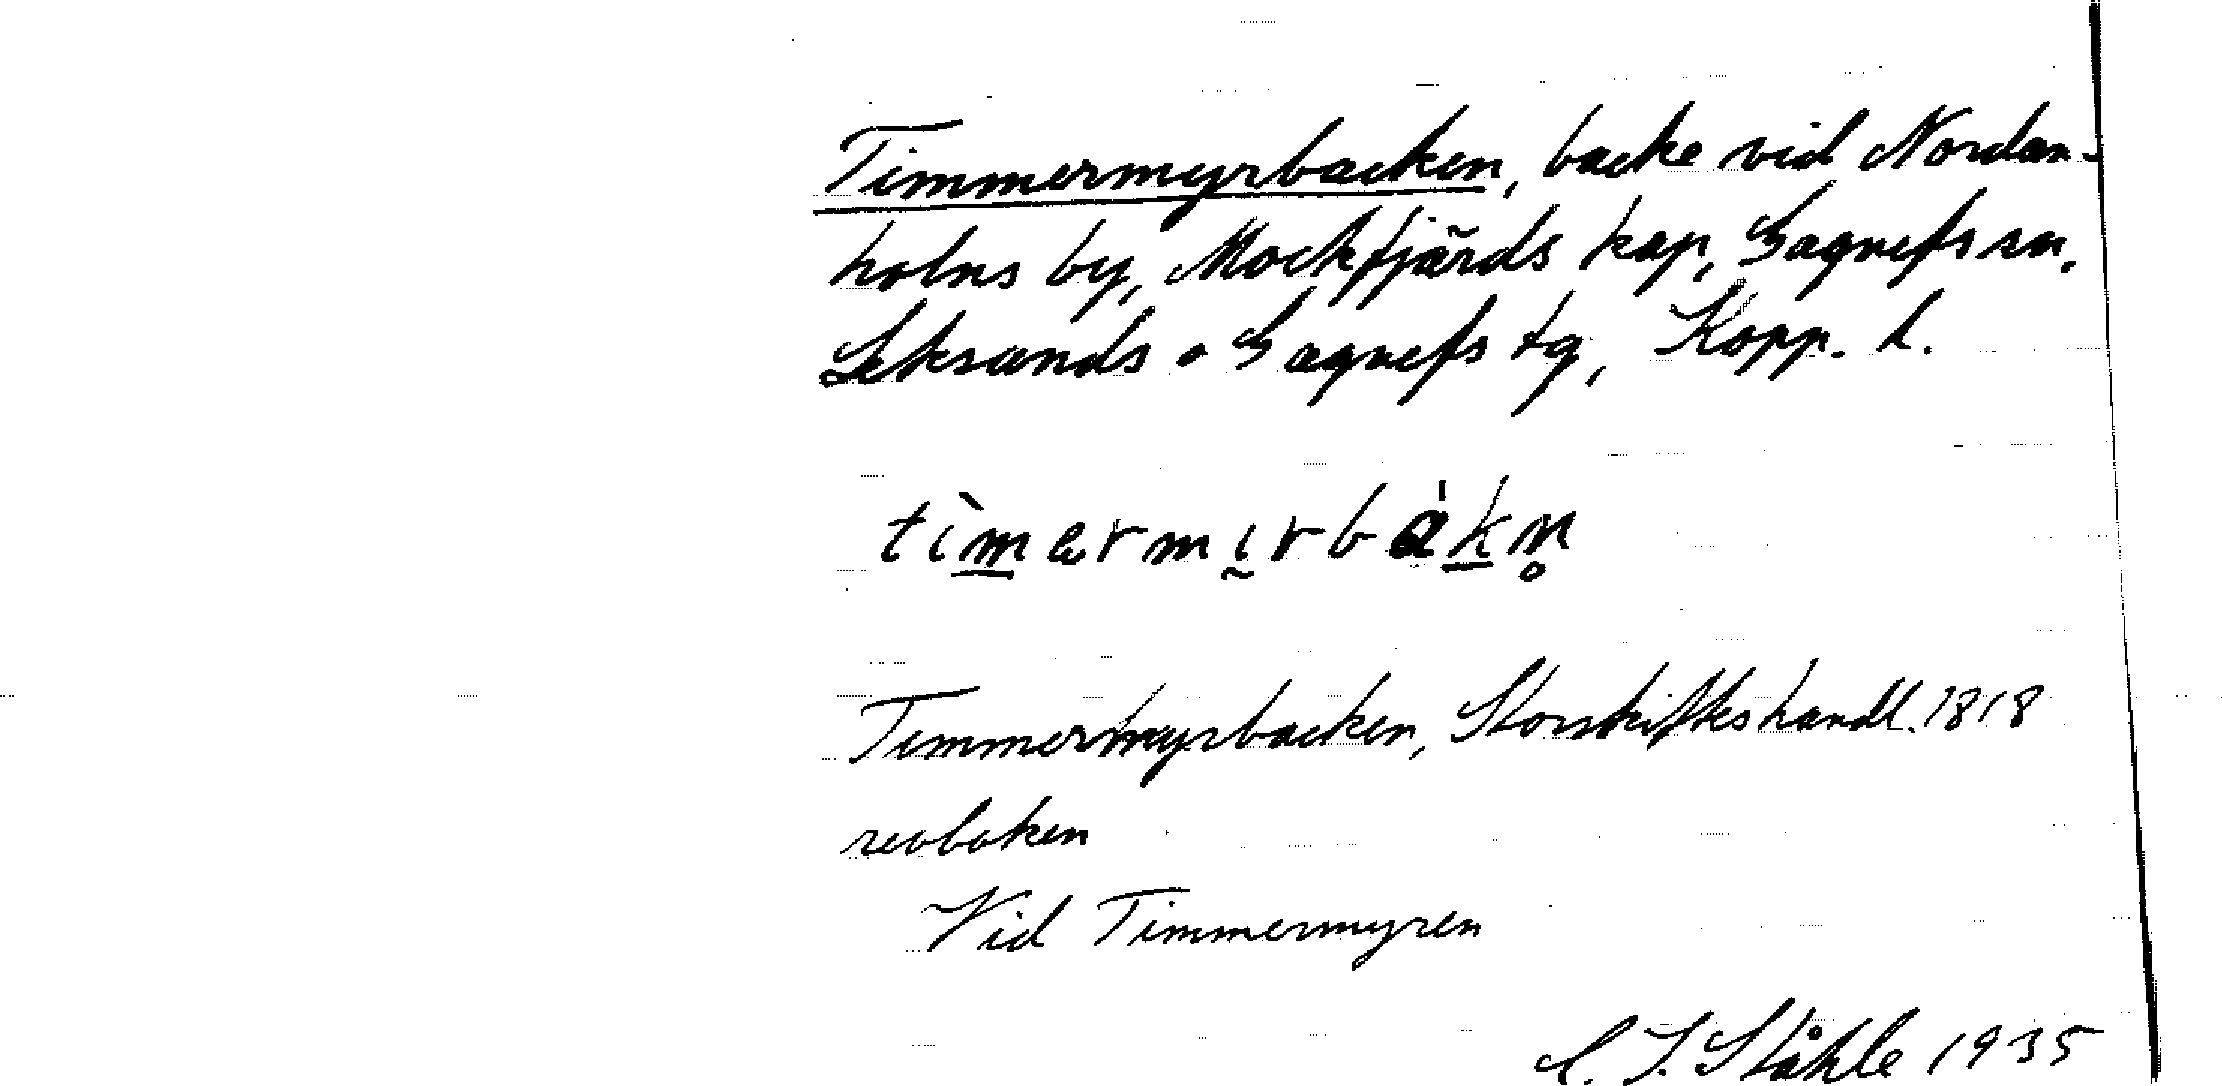 Timmermyrbacken, backe vid Nordan-
holns by, Mockfjärds kap, Gagnefs sn,
Leksands o Gagnefs tg, Kopp. l.
tìmermırbákn̥
Timmermyrbacken, Storskifteshandl. 1818
revboken
Vid Timmermyren
C. I. Ståhle 1935